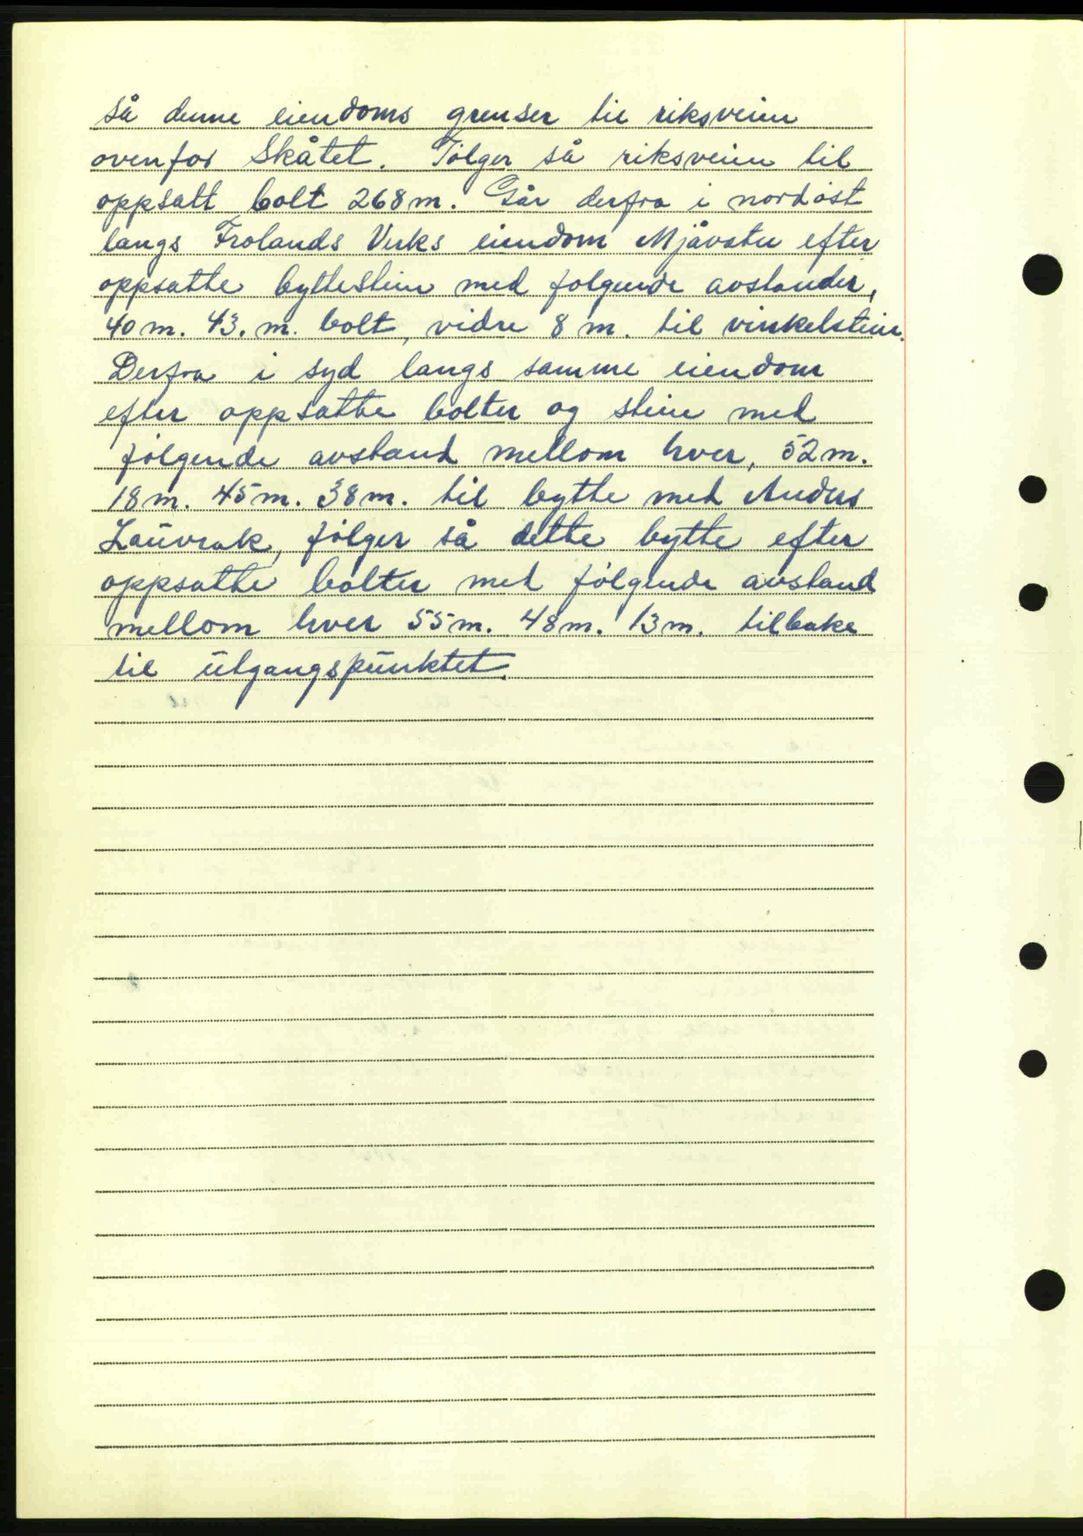 så denne eiendoms grenser til riksveien
ovenfor Skåtet. Følger så riksveien til
oppsatt bolt 268 m. Går derfra i nordøst
langs Frolands Verks eiendom Mjåvatn efter
oppsatte byttestein med følgende avstander,
40 m. 43. m. bolt, vidre 8 m. til vinkelstein.
Derfra i syd langs samme eiendom
efter oppsatte bolter og stein med
følgende avstand mellom hver, 52 m.
18 m. 45 m. 38 m. til bytte med Anders
Lauvrak, følger så dette bytte efter
oppsatte bolter med følgende avstand
mellom hver 55 m. 48 m. 13 m. tilbake
til utgangspunktet.